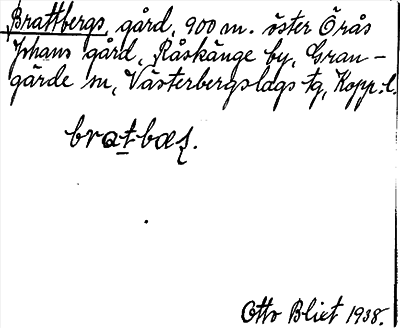 Brattbergs gård, 900 m. öster Örås
Johans gård, Råskänge by, Gran-
gärde sn, Västerbergslags tg, Kopp. l.
bratbæȥ.
Otto Blixt 1938.